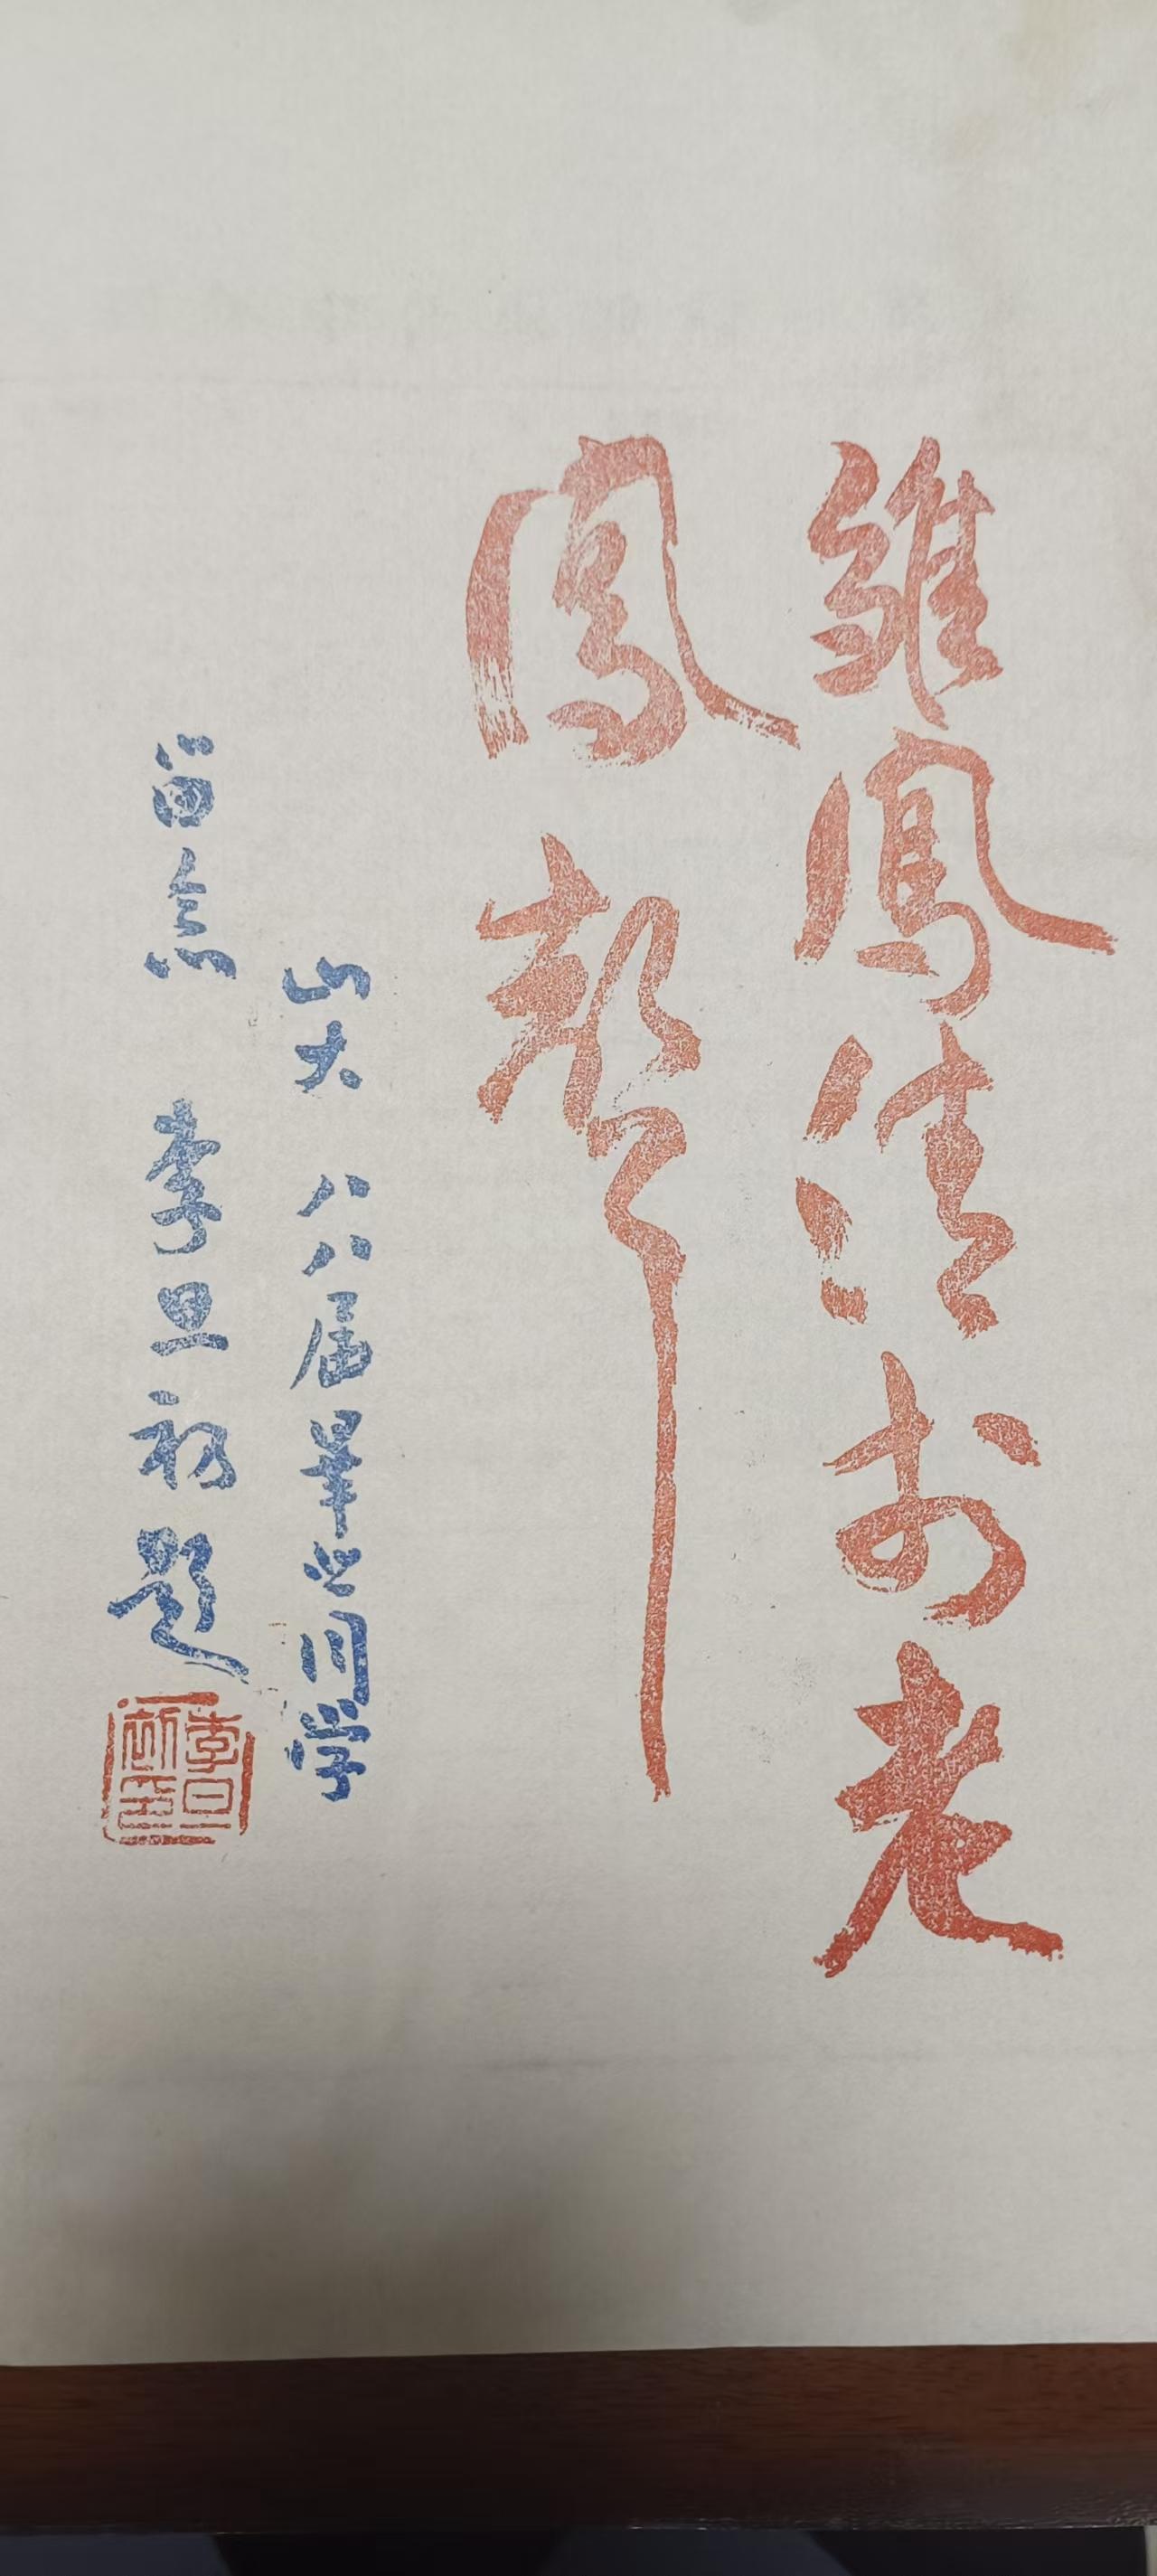 雏鳳清於老
鳳聲
山大 八八届畢业同学
留念 李旦初題
李旦初印